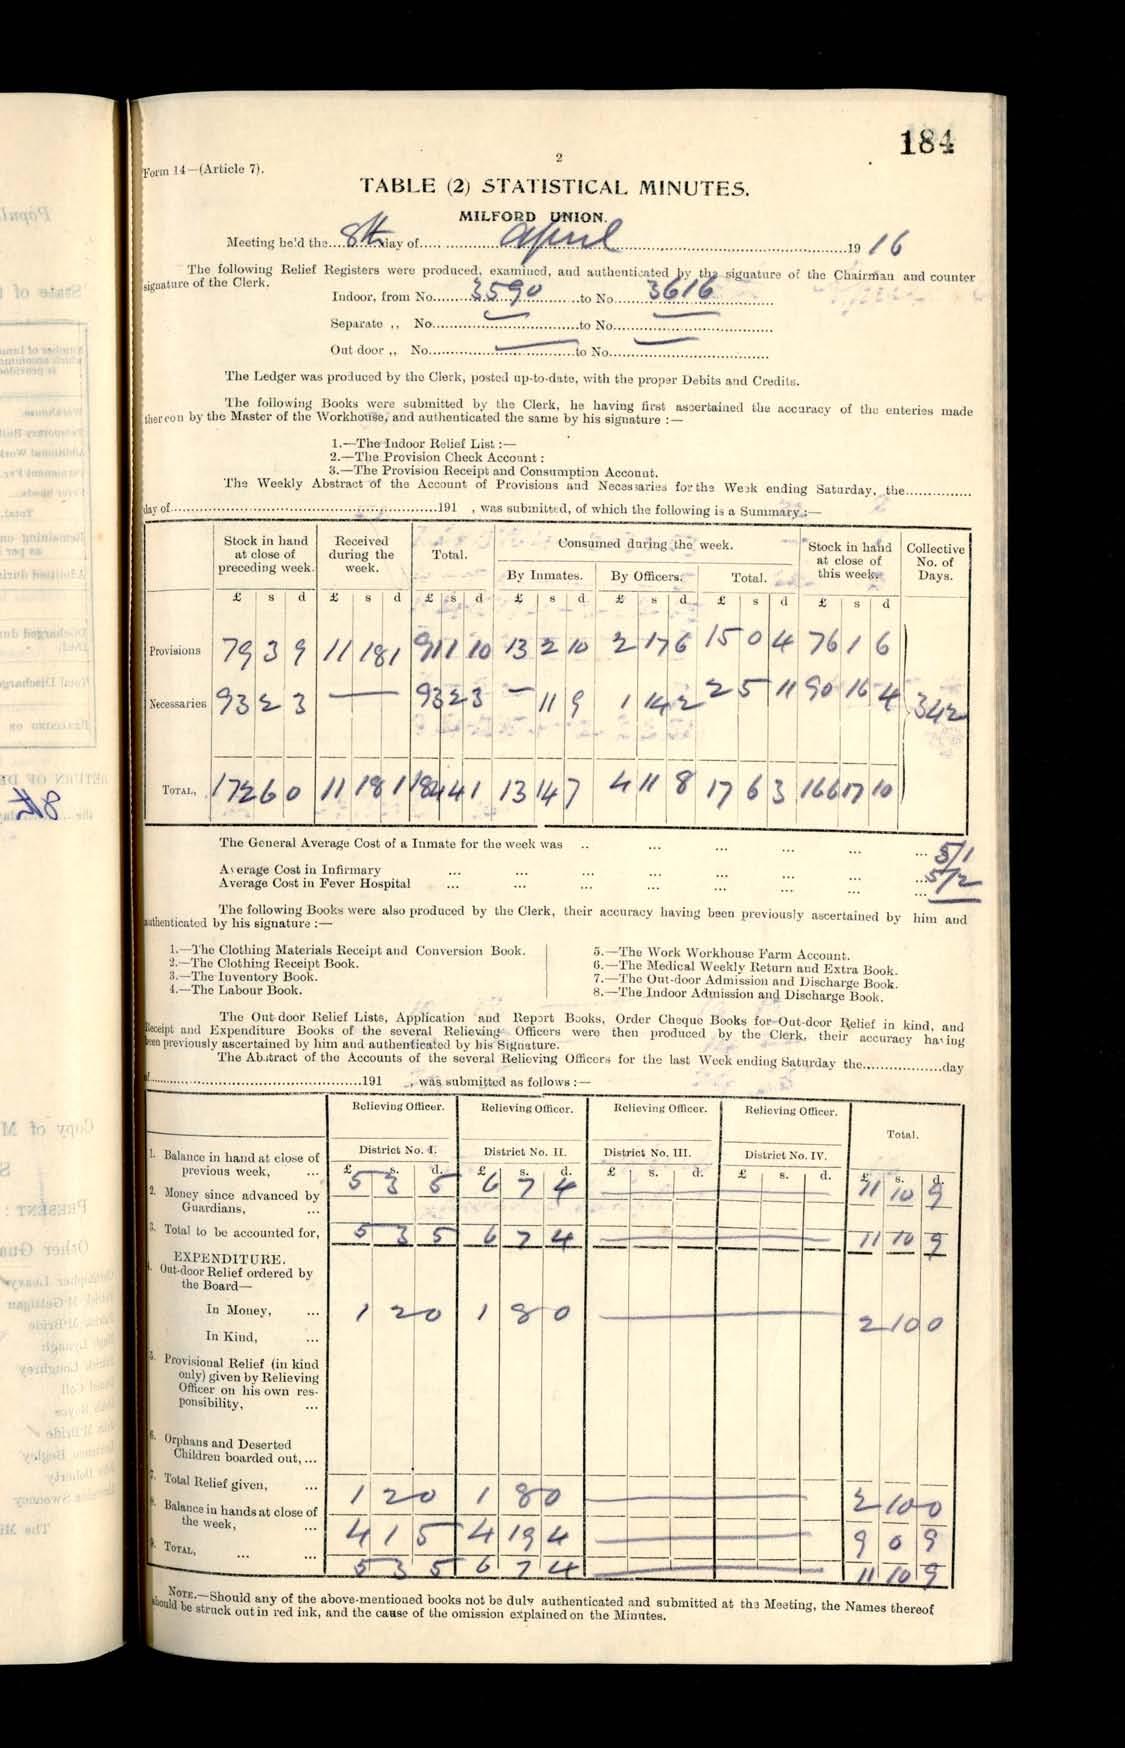 184
2
Form 14—(Article 7).
TABLE (2) STATISTICAL MINUTES.
MILFORD UNION.
Meeting he'd the 8th day of April 19 16
The following Relief Registers were produced, examined, and authenticated by the signature of the Chairman and counter
signature of the Clerk.
Indoor, from No. 3590 to No. 3616
Separate ,, No. — to No. —
Out door ,, No. — to No. —
The Ledger was produced by the Clerk, posted up-to-date, with the proper Debits and Credits.
The following Books were submitted by the Clerk, he having first ascertained the accuracy of the enteries made
thereon by the Master of the Workhouse, and authenticated the same by his signature :—
1.—The Indoor Relief List :—
2.—The Provision Check Account :
3.—The Provision Receipt and Consumption Account.
The Weekly Abstract of the Account of Provisions and Necessaries for the Week ending Saturday, the
day of 191 , was submitted, of which the following is a Summary :—
Stock in hand at close of preceding week. Received during the week. Total. Consumed during the week. Stock in hand at close of this week. Collective No. of Days.
By Inmates. By Officers. Total.
£ s d £ s d £ s d £ s d £ s d £ s d £ s d
Provisions 79 3 9 11 18 1 91 1 10 13 2 10 2 17 6 15 0 4 76 1 6
Necessaries 93 2 3 — 93 2 3 — 11 9 1 14 2 2 5 11 90 16 4 342
TOTAL, 172 6 0 11 18 1 184 4 1 13 14 7 4 11 8 17 6 3 166 17 10
The General Average Cost of a Inmate for the week was .. ... ... ... ... ... 5/1
Average Cost in Infirmary ... ... ... ... ... ... ... 5/2
Average Cost in Fever Hospital ... ... ... ... ... ... ...
The following Books were also produced by the Clerk, their accuracy having been previously ascertained by him and
authenticated by his signature :—
1.—The Clothing Materials Receipt and Conversion Book.
2.—The Clothing Receipt Book.
3.—The Inventory Book.
4.—The Labour Book.
5.—The Work Workhouse Farm Account.
6.—The Medical Weekly Return and Extra Book.
7.—The Out-door Admission and Discharge Book.
8.—The Indoor Admission and Discharge Book.
The Out-door Relief Lists, Application and Report Books, Order Cheque Books for Out-door Relief in kind, and
Receipt and Expenditure Books of the several Relieving Officers were then produced by the Clerk, their accuracy having
been previously ascertained by him and authenticated by his Signature.
The Abstract of the Accounts of the several Relieving Officers for the last Week ending Saturday the day
of 191 , was submitted as follows :—
Relieving Officer. Relieving Officer. Relieving Officer. Relieving Officer. Total.
District No. I. District No. II. District No. III. District No. IV.
£ s. d. £ s. d. £ s. d. £ s. d. £ s. d.
1. Balance in hand at close of
previous week, ... 5 3 5 6 7 4 — 11 10 9
2. Money since advanced by
Guardians, ...
3. Total to be accounted for, 5 3 5 6 7 4 — 11 10 9
EXPENDITURE.
4. Out-door Relief ordered by
the Board—
In Money, ... 1 2 0 1 8 0 — 2 10 0
In Kind, ...
5. Provisional Relief (in kind
only) given by Relieving
Officer on his own res-
ponsibility, ...
6. Orphans and Deserted
Children boarded out, ...
7. Total Relief given, ... 1 2 0 1 8 0 — 2 10 0
8. Balance in hands at close of
the week, ... 4 1 5 4 19 4 — 9 0 9
9. TOTAL, ... ... 5 3 5 6 7 4 — 11 10 9
NOTE.—Should any of the above-mentioned books not be duly authenticated and submitted at the Meeting, the Names thereof
should be struck out in red ink, and the cause of the omission explained on the Minutes.